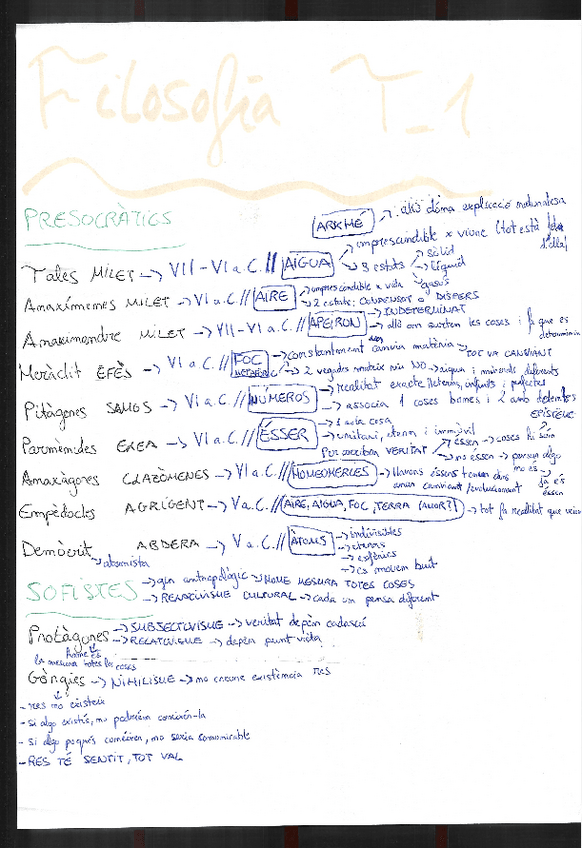 Filosofia T-1
PRESOCRÀTICS
ARKHÉ -> allò dóna explicació naturalesa
Tales MILET -> VII-VI a.C. // AIGUA -> imprescindible x viure (tot està
-> 3 estats -> sòlid
-> líquid
-> gasós
Anaxímenes MILET -> VI a.C. // AIRE -> imprescindible x vida
-> 2 estats: CONDENSAT o DISPERS
Anaximandre MILET -> VII-VI a.C. // APEIRON -> INDETERMINAT
-> allò on surten les coses i fa que es
Heràclit EFÈS -> VI a.C. // FOC -> constantment canvia matèria -> TOT VA CANVIANT
-> 2 vegades mateix riu NO -> aigua i minerals diferents
Pitàgores SAMOS -> VI a.C. // NÚMEROS -> realitat exacte
-> associa 1 coses bones i 2 amb dolentes
Parmènides ELEA -> VI a.C. // ÉSSER -> 1 sola cosa
-> unitari, etern i immòbil
VERITAT -> ésser -> coses hi són
-> no ésser -> pensar algo
no és
ja és
ésser
Anaxàgores CLAZÒMENES -> VI a.C. // HOMEOMERIES -> llavors éssers tenen dins
anar canviant/evolucionant
Empèdocles AGRIGENT -> V a.C. // AIRE, AIGUA, FOC, TERRA (AMOR?) -> tot fa realitat que
Demòcrit ABDERA -> V a.C. // ÀTOMS -> indivisibles
-> atomista
-> eterns
-> esfèrics
-> es mouen buit
SOFISTES -> gir antropològic -> HOME MESURA TOTES COSES
-> RELATIVISME CULTURAL -> cada un pensa diferent
Protàgores -> SUBJECTIVISME -> veritat depèn cadascú
-> RELATIVISME -> depèn punt vista
home és
la mesura totes les coses
Gòrgies -> NIHILISME -> no creure existència res
- res no existeix
- si algo existís, no podríem conèixer-la
- si algo pogués conèixer, no seria comunicable
- RES TÉ SENTIT, TOT VAL